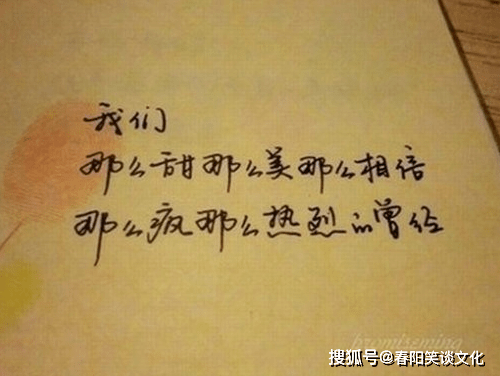 我们
那么甜那么美那么相信
那么疯那么热烈的曾经
promiseming
搜狐号@春阳笑谈文化